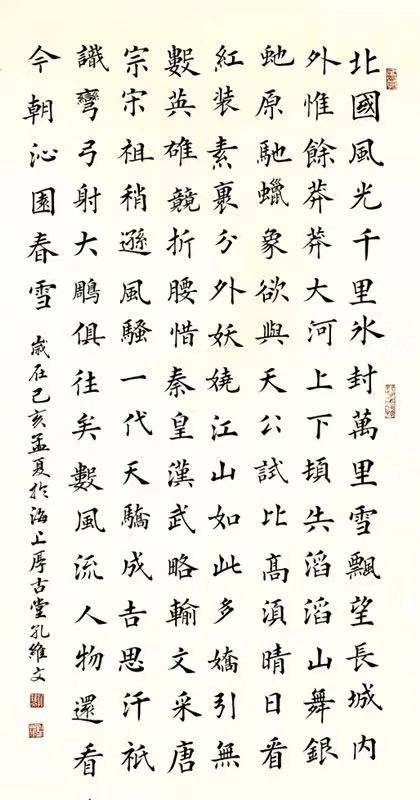 北國風光千里氷封萬里雪飄望長城内
外惟餘莽莽大河上下頓失滔滔山舞銀
虵原馳蠟象欲與天公試比高須晴日看
紅装素裹分外妖嬈江山如此多嬌引無
數英雄競折腰惜秦皇漢武略輸文采唐
宗宋祖稍遜風騷一代天驕成吉思汗祇
識彎弓射大鵰俱往矣數風流人物還看
今朝沁園春雪 歲在己亥孟夏於海上厚古堂孔維文